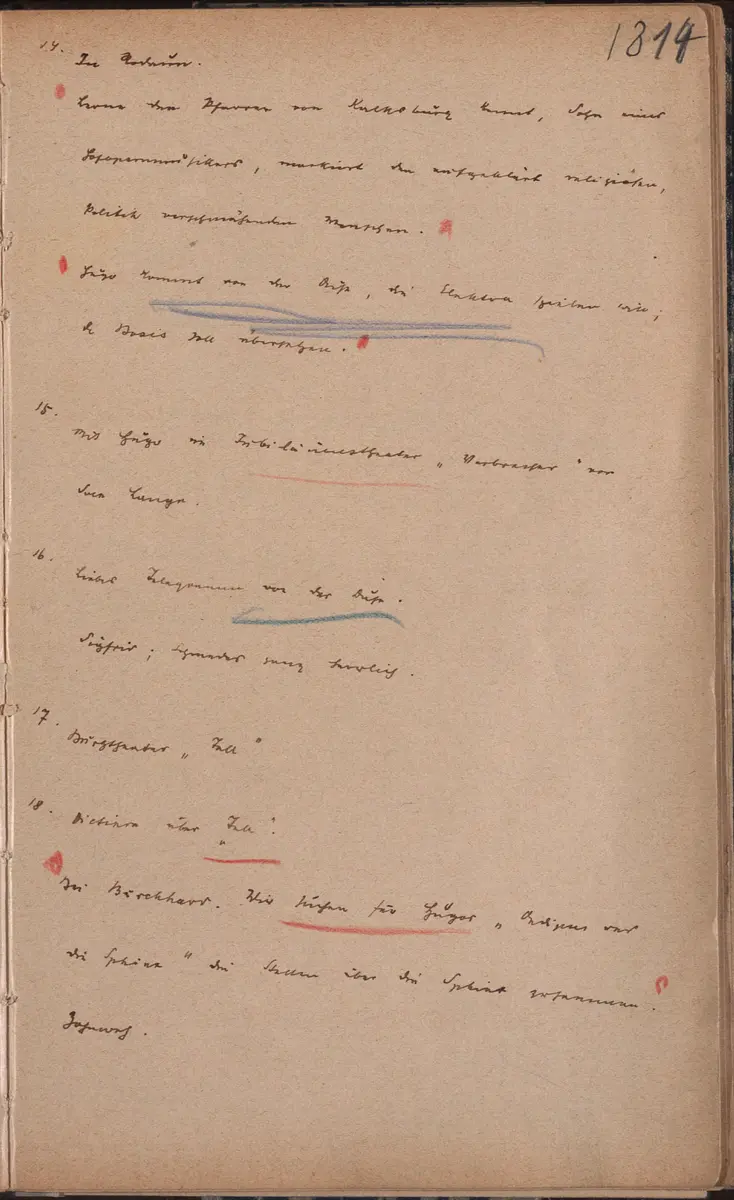 1814
14. In Rodaun.
Lerne den Pfarrer von Kalksburg kennen, Sohn eines
Hofopernmusikers, markiert den aufgeklärt religiösen,
Politik verschmähenden Menschen.
Hugo kommt von der Duse, die Elektra spielen will;
die Basis soll übersetzen.
15. Mit Hugo im Jubiläumstheater „Verbrecher" von
Sven Lange.
16. Liebes Telegramm von der Duse.
Sigfrid; Schmedes ganz herrlich.
17. Burgtheater „Tell"
18. Dictiere über „Tell".
Bei Burckhard. Wir suchen für Hugos „Oedipus und
die Sphinx" die Stellen über die Sphinx zusammen.
Zahnweh.